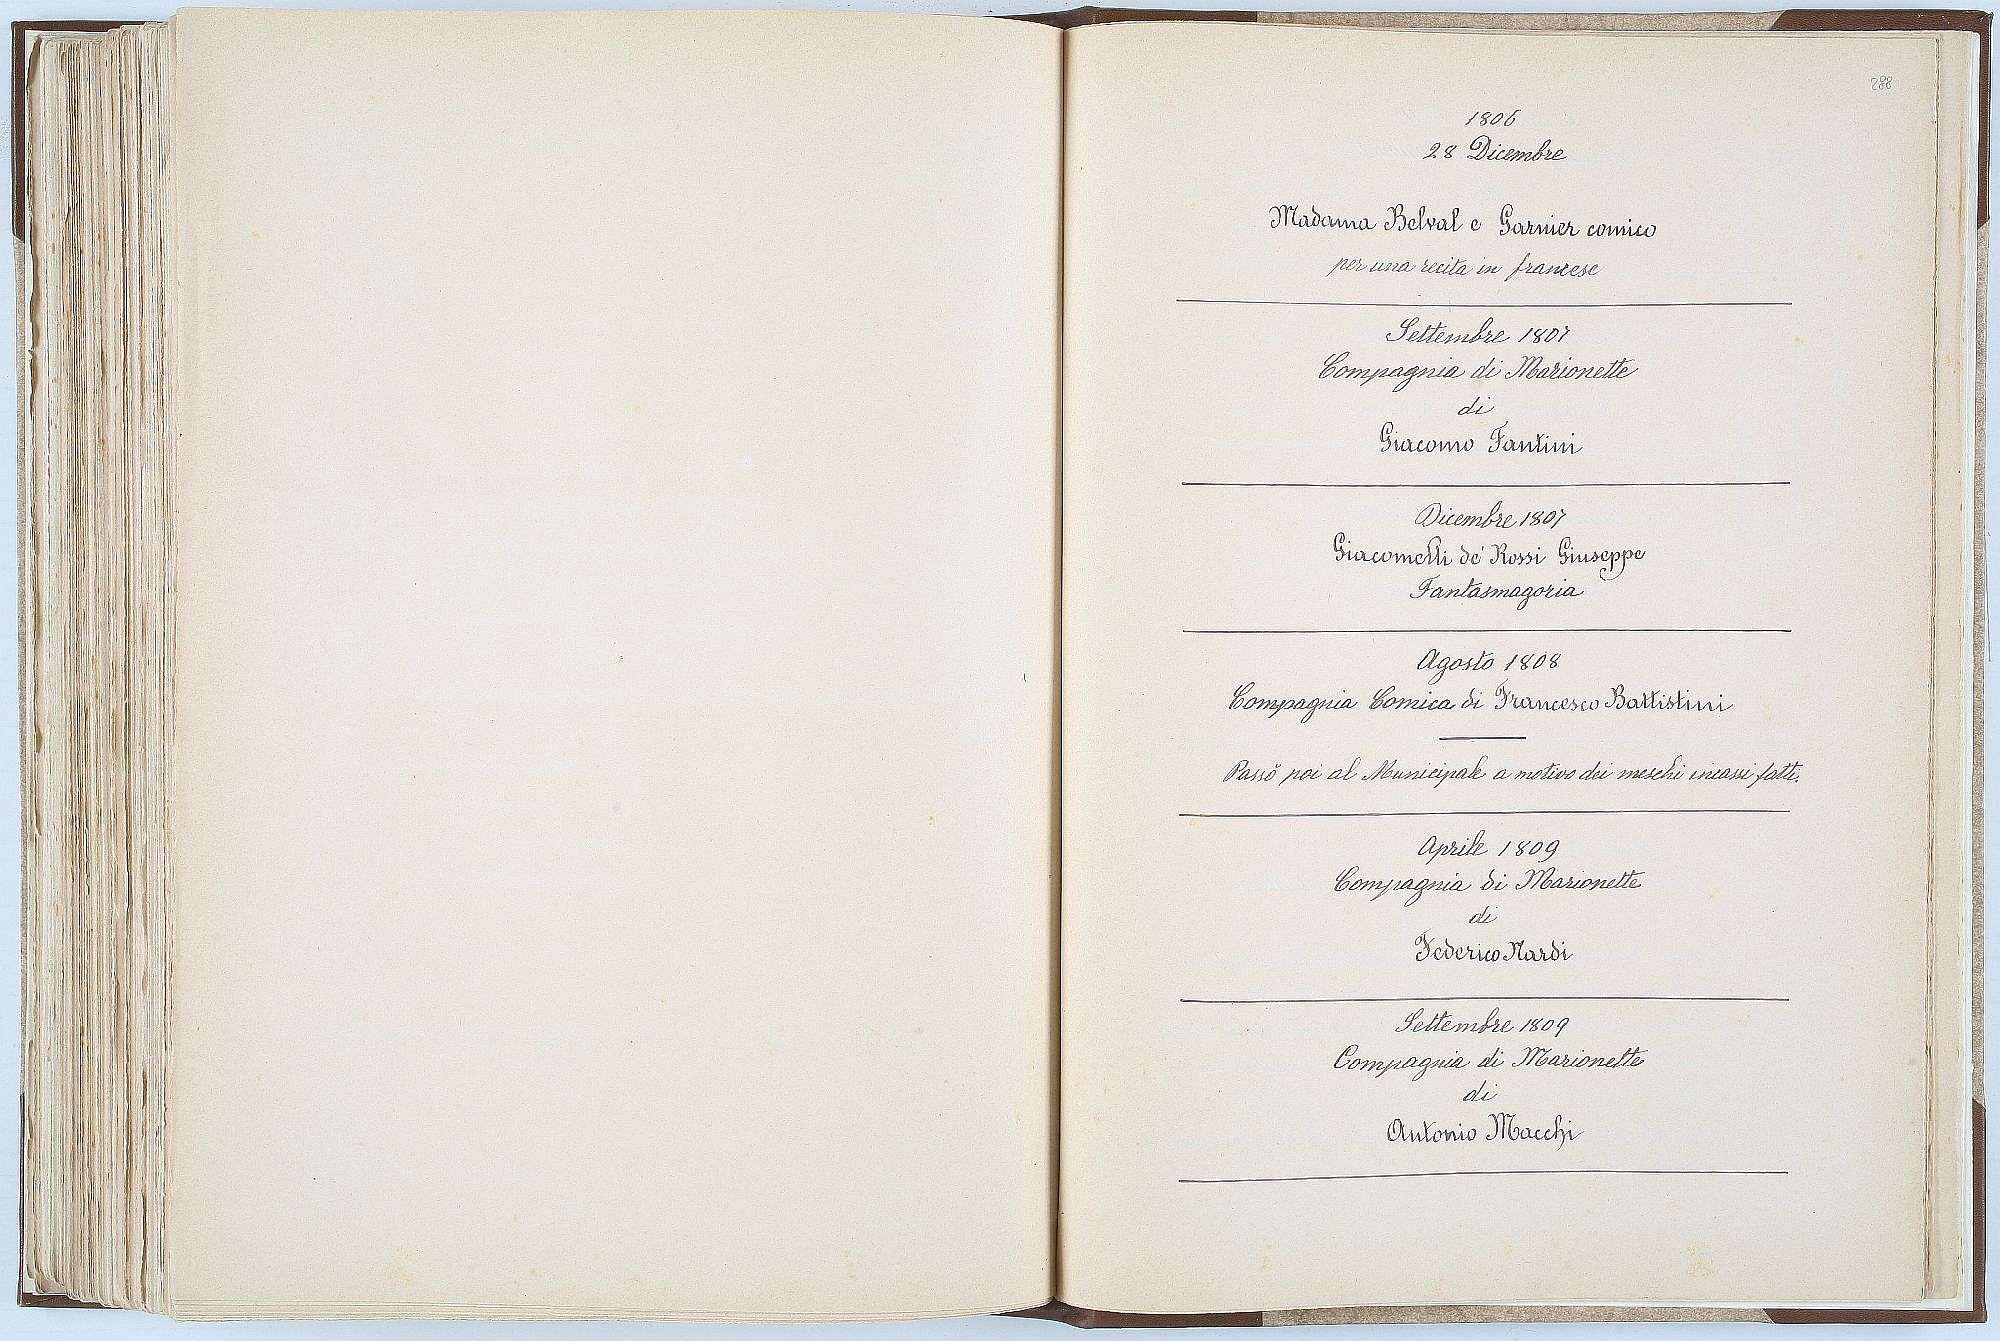 288
1806
28 Dicembre
Madama Belval e Garnier comico
per una recita in francese
Settembre 1807
Compagnia di Marionette
di
Giacomo Fantini
Dicembre 1807
Giacomelli de' Rossi Giuseppe
Fantasmagoria
Agosto 1808
Compagnia Comica di Francesco Battistini
Passò poi al Municipale a motivo dei meschi incassi fatti.
Aprile 1809
Compagnia di Marionette
di
Federico Nardi
Settembre 1809
Compagnia di Marionette
di
Antonio Macchi